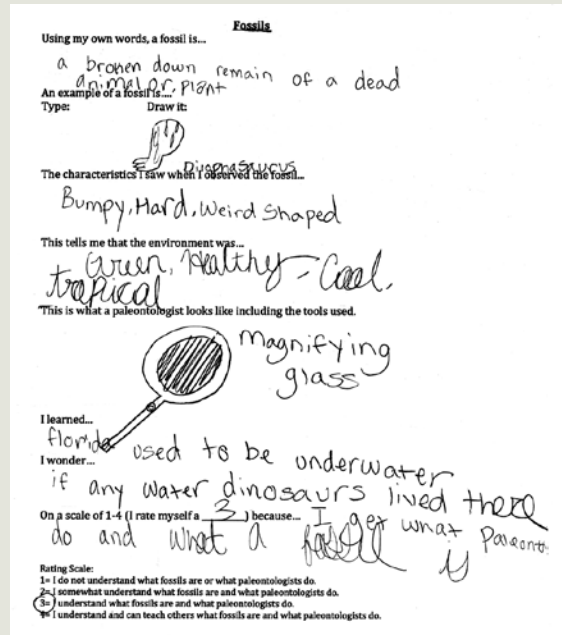 Fossils
Using my own words, a fossil is...
a broken down remain of a dead
animal or plant
An example of a fossil is....
Type: Draw it:
The characteristics I saw when I observed the fossil...
Bumpy, Hard, Weird Shaped
This tells me that the environment was...
Green, Healthy, Cool,
trapical
This is what a paleontologist looks like including the tools used.
magnifying
glass
I learned...
florida used to be underwater
I wonder...
if any water dinosaurs lived there
On a scale of 1-4 (I rate myself a 3 ) because... I get what
do and what a
Rating Scale:
1= I do not understand what fossils are or what paleontologists do.
2= I somewhat understand what fossils are and what paleontologists do.
3= I understand what fossils are and what paleontologists do.
4= I understand and can teach others what fossils are and what paleontologists do.